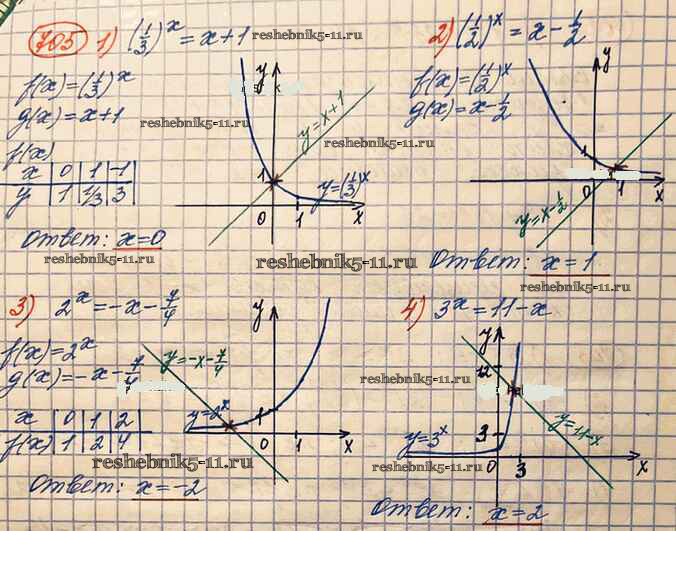 705 1) (1/3)^x = x+1 reshebnik5-11.ru
f(x)=(1/3)^x
g(x)=x+1
f(x)
x | 0 | 1 | -1
y | 1 | 1/3 | 3
y
reshebnik5-11.ru
y=x+1
1
y=(1/3)^x
0 1 x
Ответ: x=0
reshebnik5-11.ru
reshebnik5-11.ru
2) (1/2)^x = x - 1/2
f(x)=(1/2)^x
g(x)=x-1/2
reshebnik5-11.ru
y
1
0 1 x
y=x-1/2
Ответ: x=1
reshebnik5-11.ru
3) 2^x = -x - 7/4
f(x)=2^x
g(x)=-x-7/4
x | 0 | 1 | 2
f(x) | 1 | 2 | 4
y
y=-x-7/4
y=2^x
1
0 1 x
reshebnik5-11.ru
Ответ: x=-2
4) 3^x = 11-x
y
12
reshebnik5-11.ru
y=11-x
y=3^x
3
0 3 x
reshebnik5-11.ru
Ответ: x=2